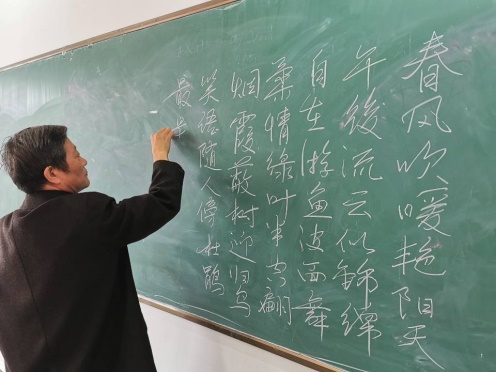 春风吹暖艳阳天
午後流云似锦绵
自在游鱼波面舞
柔情绿叶半空翩
烟霞蔽树迎归鸟
笑语随人傍杜鹃
最